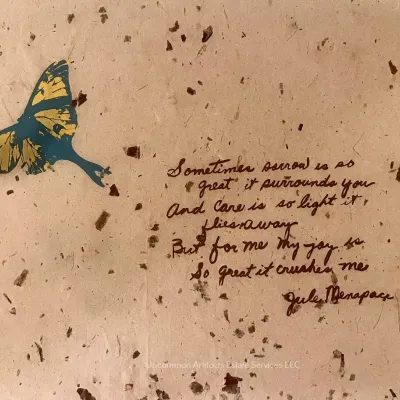 Sometimes sorrow is so
great it surrounds you
And care is so light it
flies away
But for me my joy is
So great it crushes me
Jule Menapace
Uncommon Artifacts Estate Services LLC